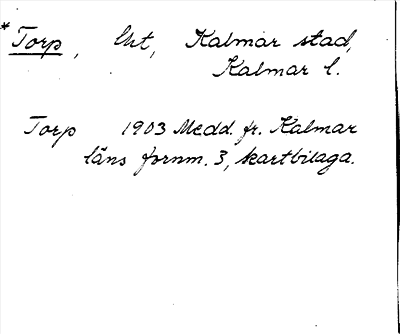 *Torp, lht, Kalmar stad,
Kalmar l.
Torp 1903 Medd. fr. Kalmar
läns fornm. 3, kartbilaga.